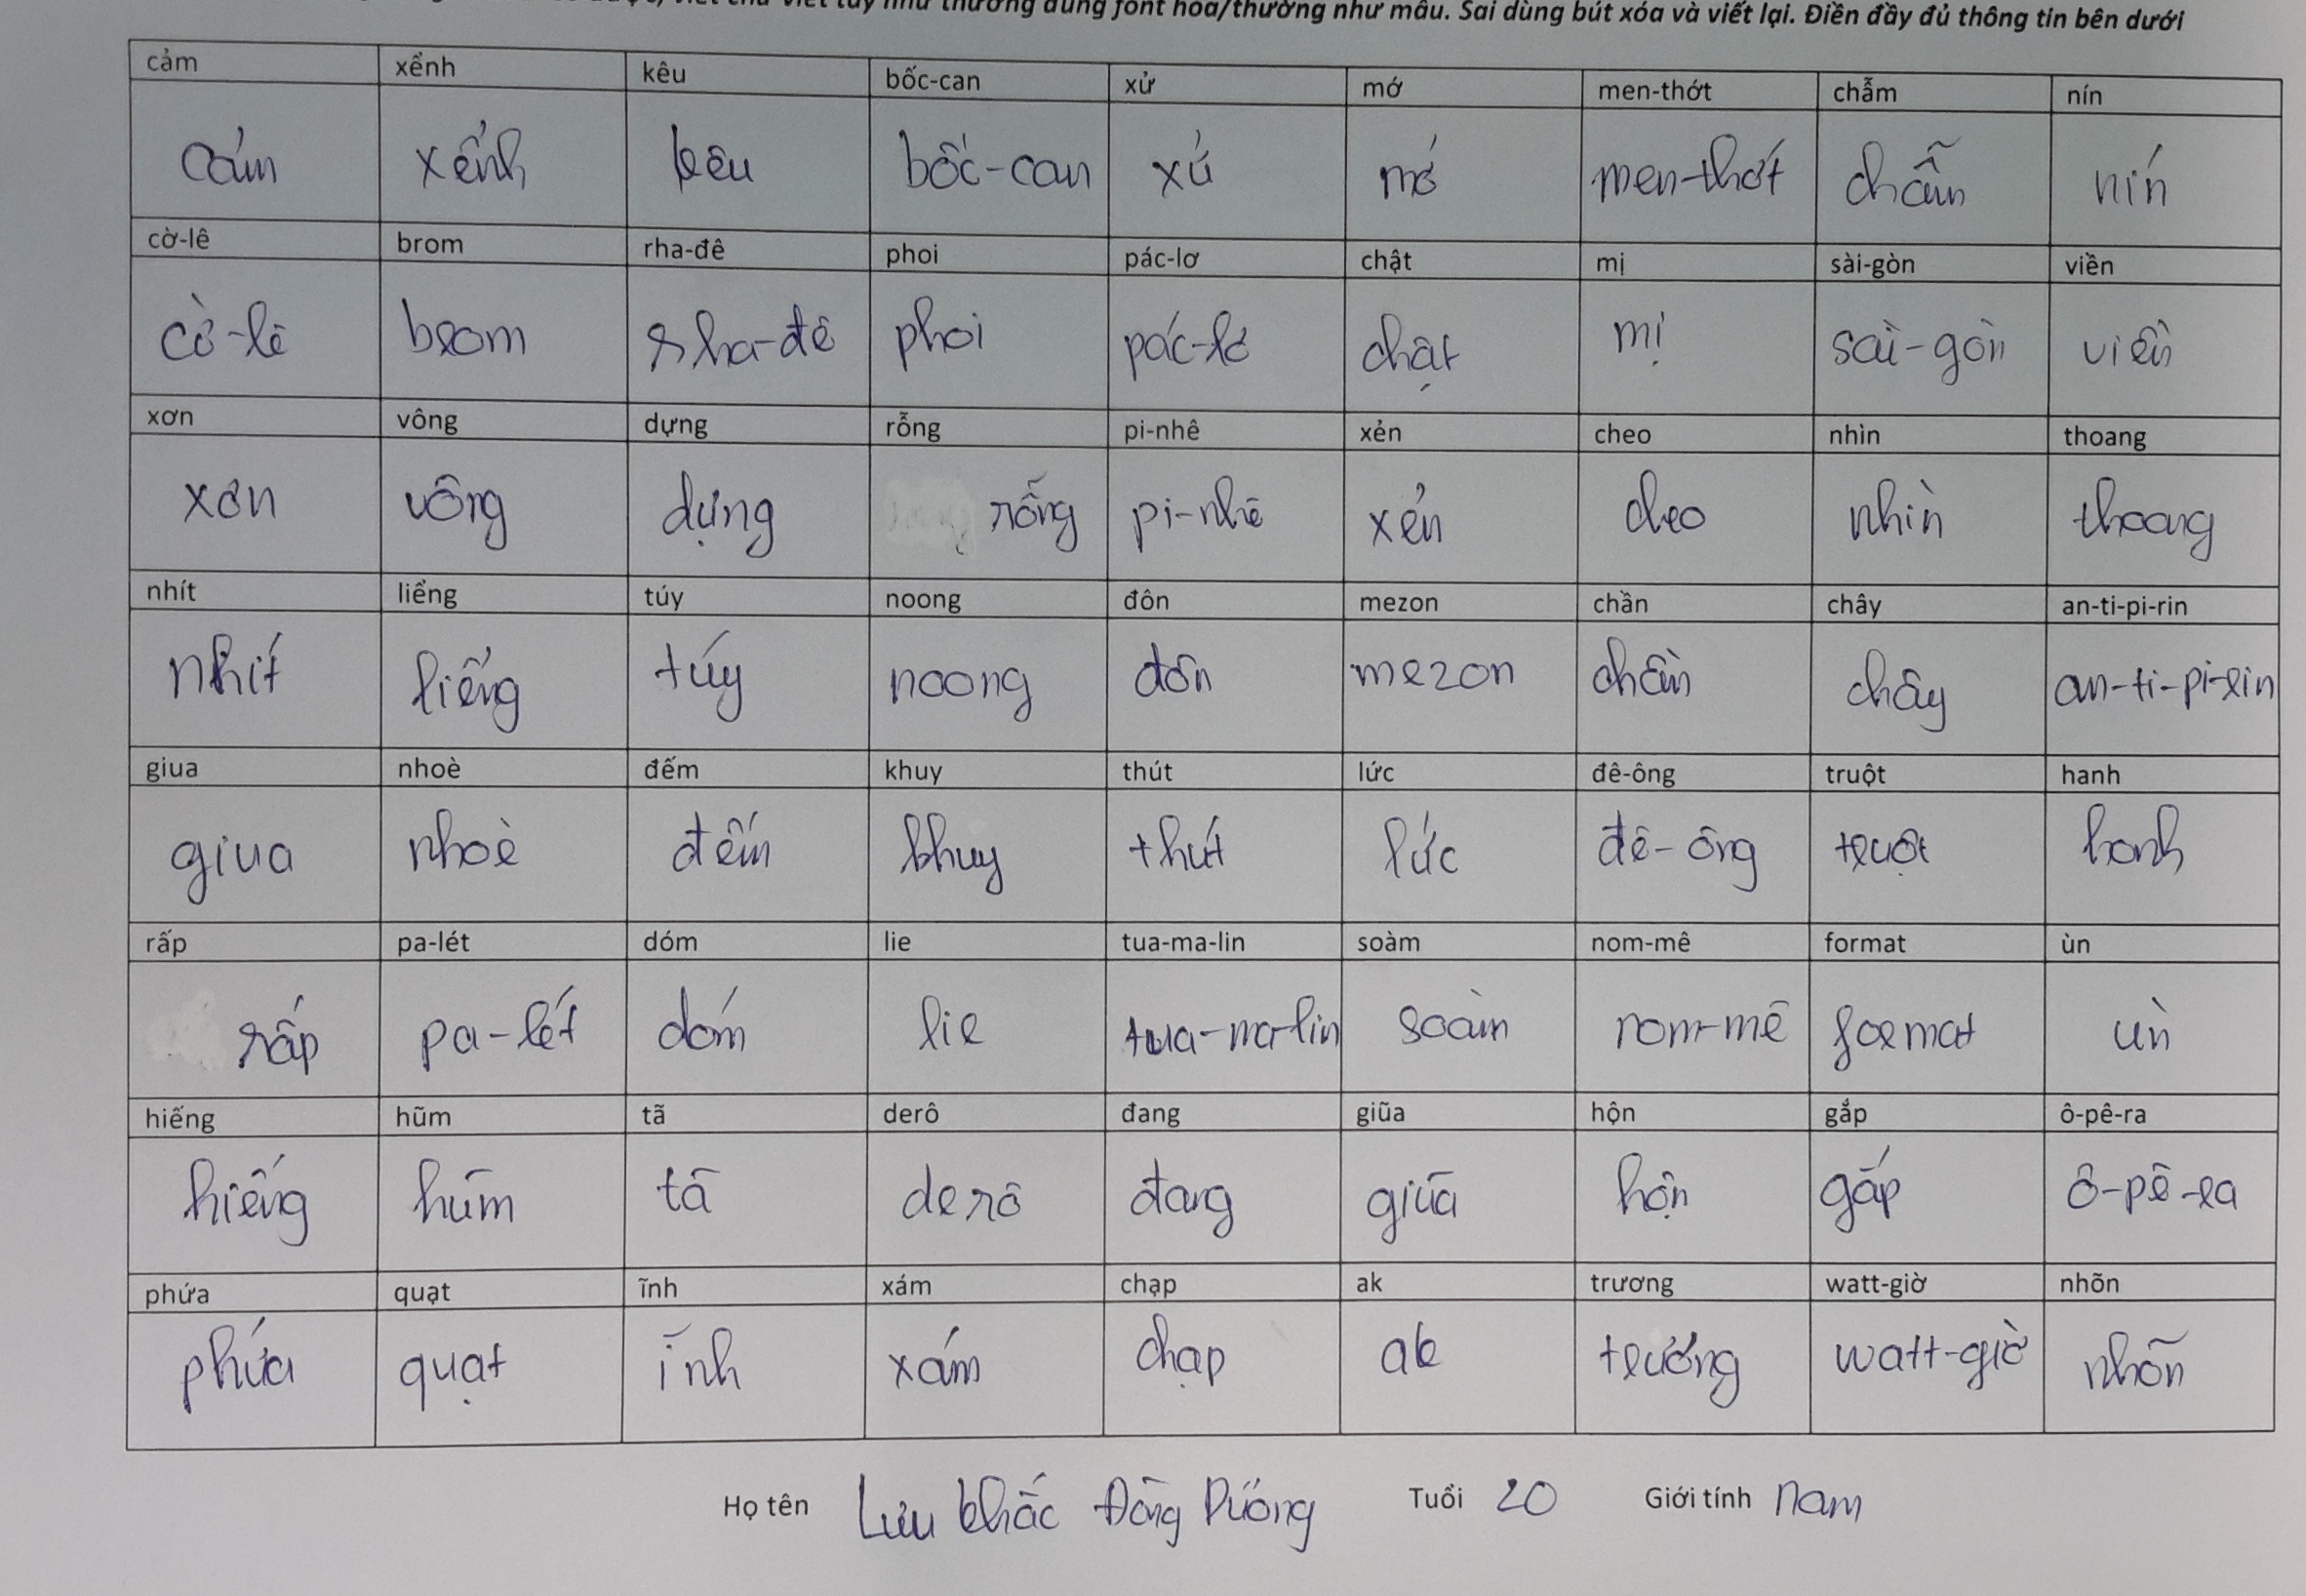 viết chữ viết tay như thường dùng font hoa/thường như mẫu. Sai dùng bút xóa và viết lại. Điền đầy đủ thông tin bên dưới
cảm xểnh kêu bốc-can xử mớ men-thớt chẫm nín
cảm xểnh kêu bốc-can xử mớ men-thớt chẫm nín
cờ-lê brom rha-đê phoi pác-lơ chật mị sài-gòn viền
cờ-lê brom rha-đê phoi pác-lơ chật mị sài-gòn viền
xơn vông dựng rỗng pi-nhê xẻn cheo nhìn thoang
xơn vông dựng rỗng pi-nhê xẻn cheo nhìn thoang
nhít liểng túy noong đôn mezon chần chây an-ti-pi-rin
nhít liểng túy noong đôn mezon chần chây an-ti-pi-rin
giua nhoè đếm khuy thút lức đê-ông truột hanh
giua nhoè đếm khuy thút lức đê-ông truột hanh
rấp pa-lét dóm lie tua-ma-lin soàm nom-mê format ùn
rấp pa-lét dóm lie tua-ma-lin soàm nom-mê format ùn
hiếng hũm tã derô đang giũa hộn gắp ô-pê-ra
hiếng hũm tã derô đang giũa hộn gắp ô-pê-ra
phứa quạt ĩnh xám chạp ak trương watt-giờ nhõn
phứa quạt ĩnh xám chạp ak trương watt-giờ nhõn
Họ tên Lưu Khắc Đông Dương Tuổi 20 Giới tính nam